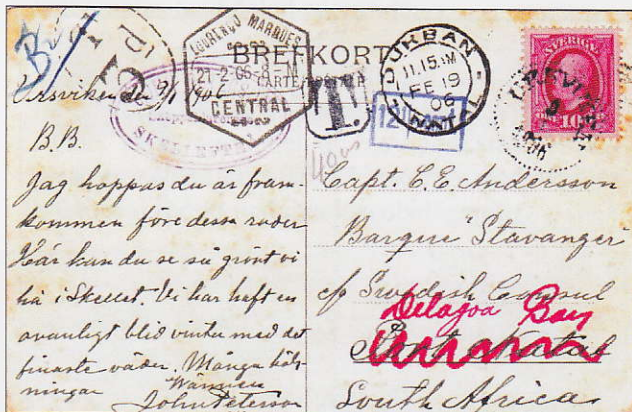 BREFKORT
LOURENÇO MARQUES
21-2-06-8
CENTRAL
DURBAN
11.15.AM
FE 19
06
NATAL
T.
SVERIGE
10
Ursviken den 9/1 1906
B.B.
Jag hoppas du är fram-
kommen före dessa rader
Här kan du se så grönt vi
ha i Skellet. Vi har haft en
ovanligt blid vinter med det
finaste väder. Många häls-
ningar
John Peterson
Capt. C. E. Andersson
Barque "Stavanger"
c/o Swedish Consul
Delagoa Bay
Port Natal
South Africa